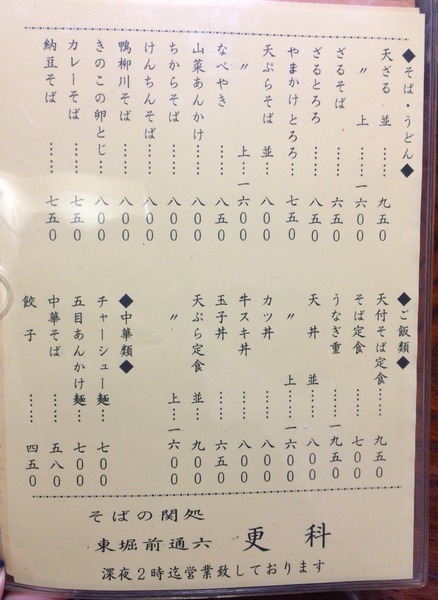 ◆そば・うどん◆
天ざる 並……九五〇
〃 上…一六〇〇
ざるそば……六五〇
ざるとろろ……八五〇
やまかけとろろ…七五〇
天ぷらそば 並…八〇〇
〃 上…一六〇〇
なべやき……八五〇
山菜あんかけ……八〇〇
ちからそば……八〇〇
けんちんそば…八〇〇
鴨柳川そば……八〇〇
きのこの卵とじ…八〇〇
カレーそば……七五〇
納豆そば……七五〇
◆ご飯類◆
天付そば定食…九五〇
そば定食……七〇〇
うなぎ重……一九五〇
天丼 並……八〇〇
〃 上…一六〇〇
カツ丼……八〇〇
牛スキ丼……八〇〇
玉子丼……六五〇
天ぷら定食 並…九〇〇
〃 上…一六〇〇
◆中華類◆
チャーシュー麺…七〇〇
五目あんかけ麺…七〇〇
中華そば……五八〇
餃子……四五〇
そばの関処
東堀前通六 更科
深夜2時迄営業致しております